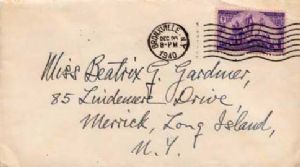 BRONXVILLE N.Y.
DEC
8-PM
1940
Miss Beatrix G. Gardner,
85 Lindemere Drive,
Merrick, Long Island,
N.Y.